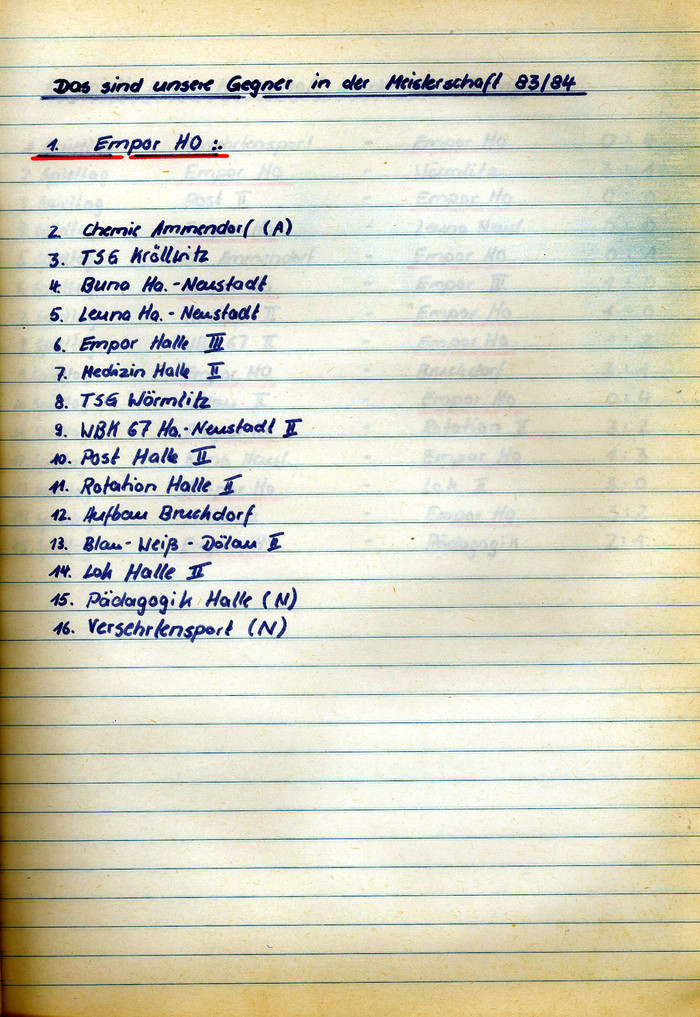 Das sind unsere Gegner in der Meisterschaft 83/84
1. Empor HO :.
2. Chemie Ammendorf (A)
3. TSG Kröllwitz
4. Buna Ha.-Neustadt
5. Leuna Ha.-Neustadt
6. Empor Halle III
7. Medizin Halle II
8. TSG Wörmlitz
9. WBK 67 Ha.-Neustadt II
10. Post Halle II
11. Rotation Halle II
12. Aufbau Bruchdorf
13. Blau-Weiß-Dölau II
14. Lok Halle II
15. Pädagogik Halle (N)
16. Versehrtensport (N)